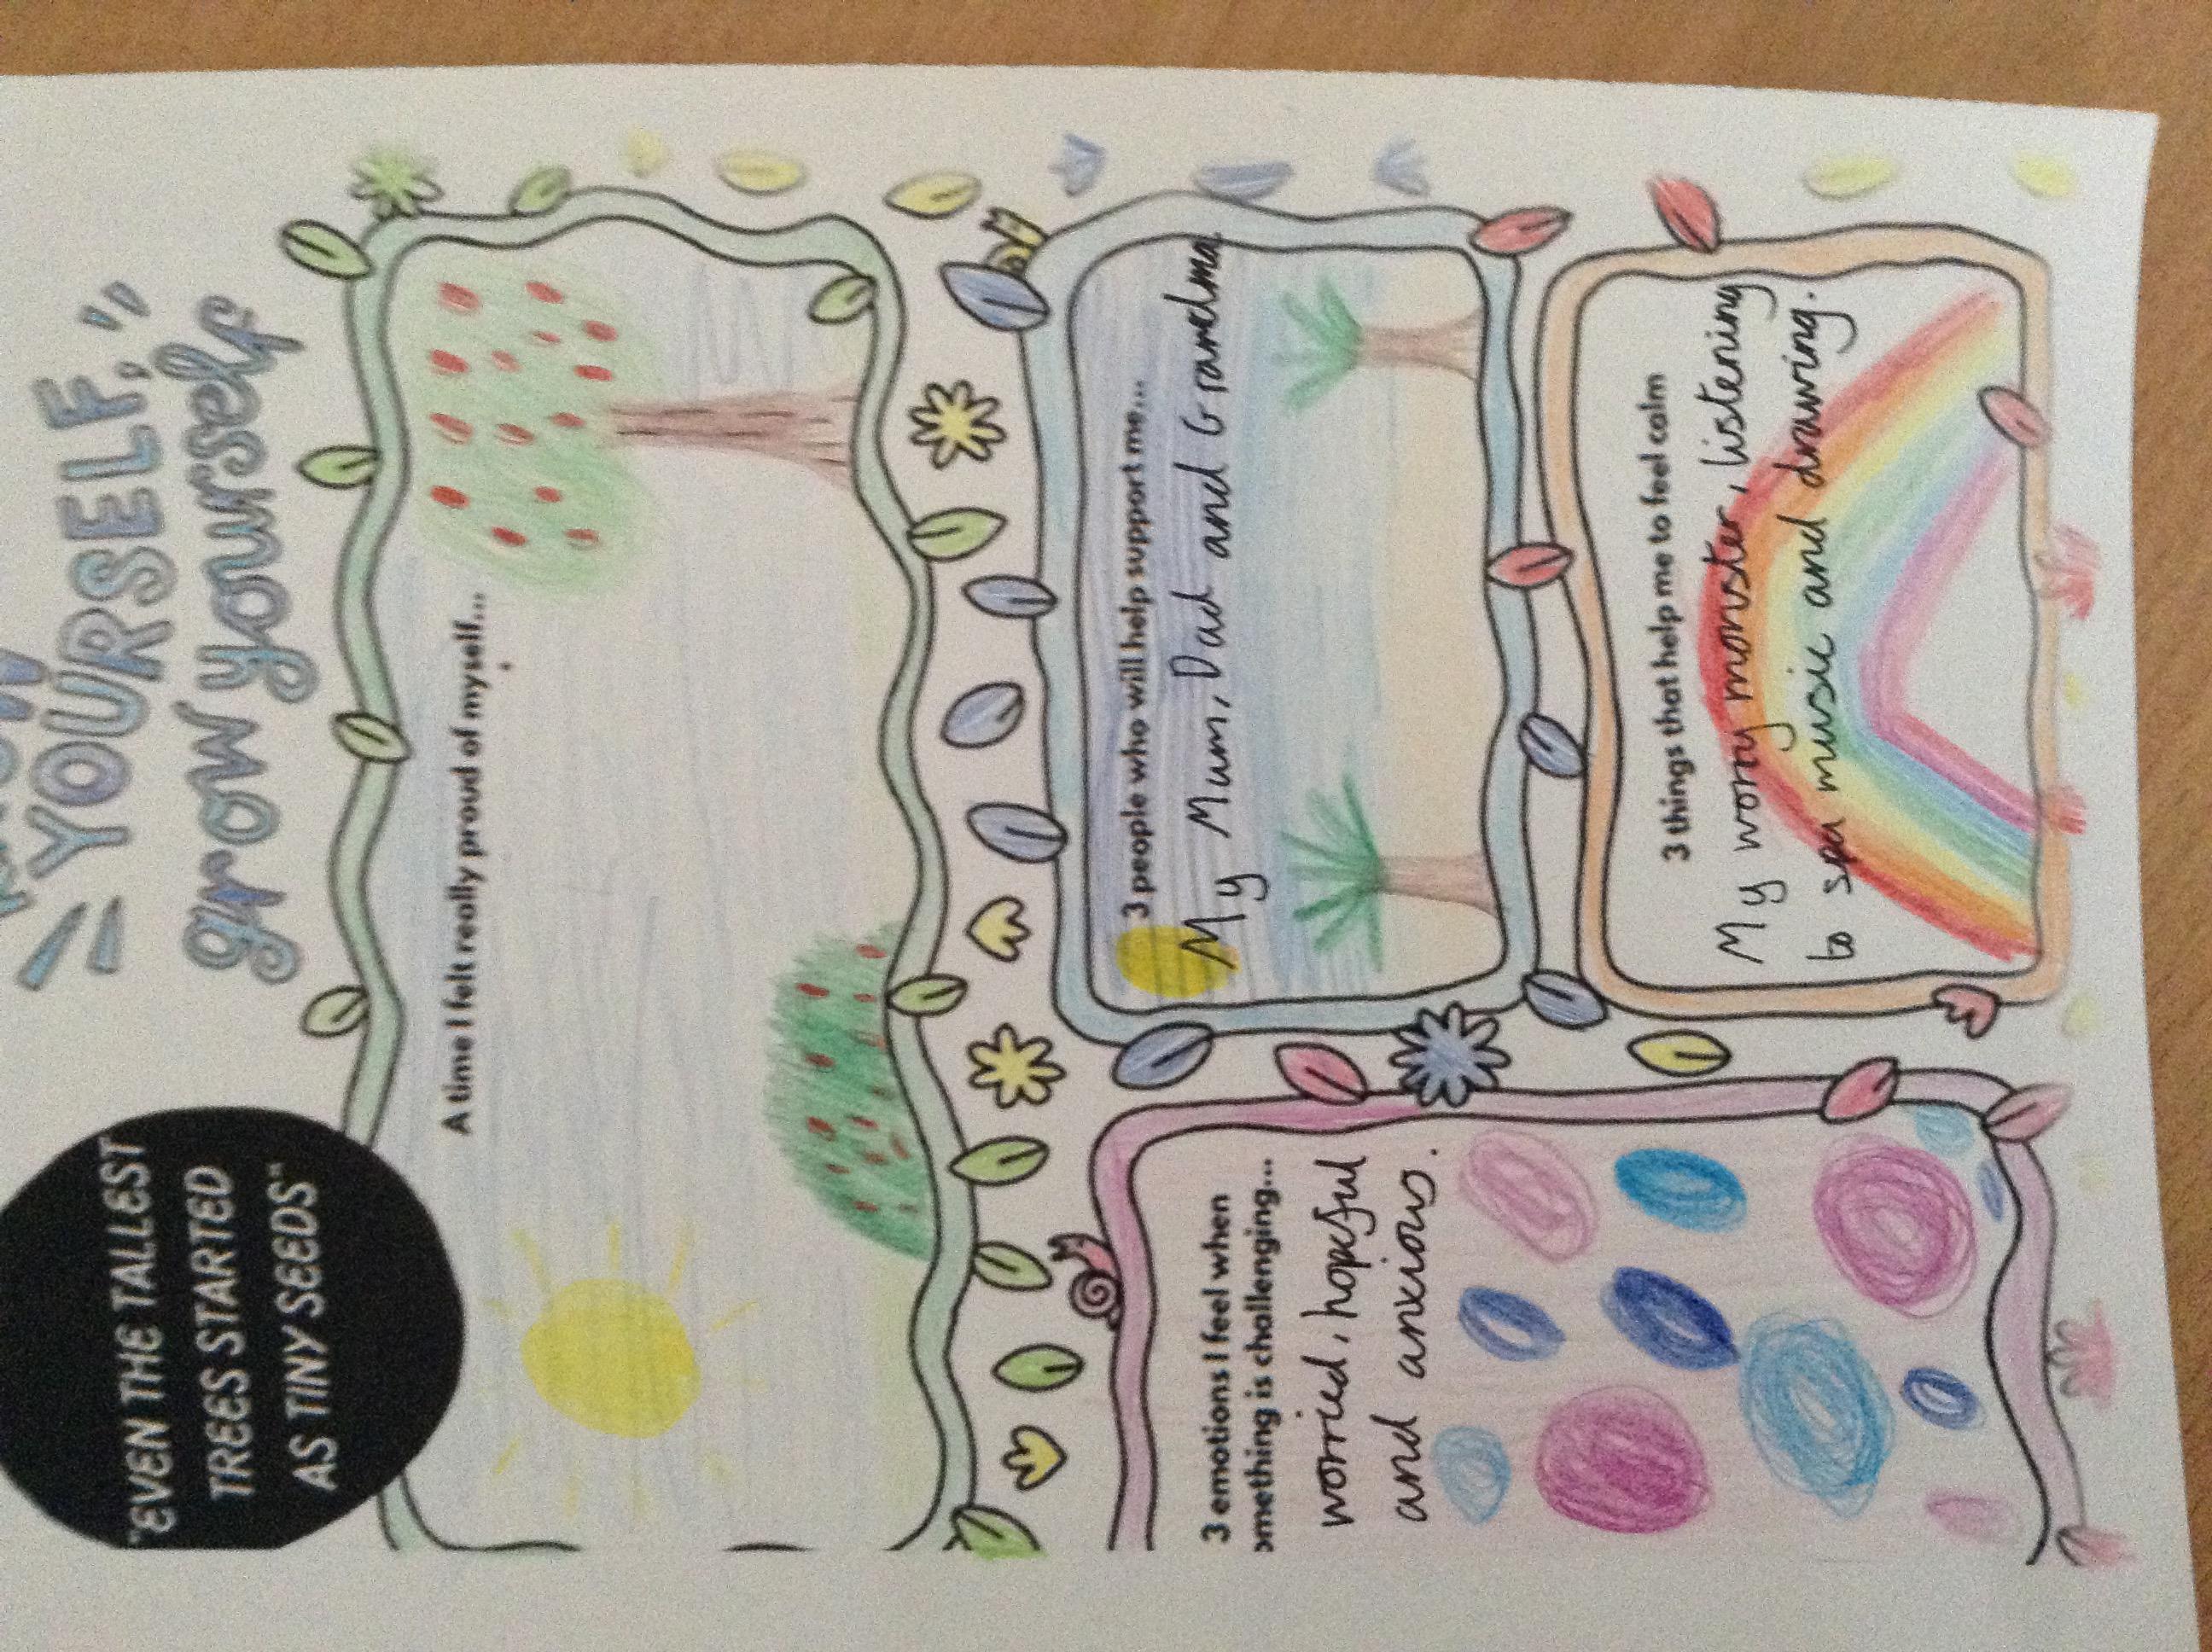 YOURSELF,
grow yourself
"EVEN THE TALLEST
TREES STARTED
AS TINY SEEDS"
A time I felt really proud of myself...
3 emotions I feel when
something is challenging...
worried, hopeful
and anxious.
3 people who will help support me...
My Mum, Dad and Grandma.
3 things that help me to feel calm
My worry monster, listening
to sea music and drawing.